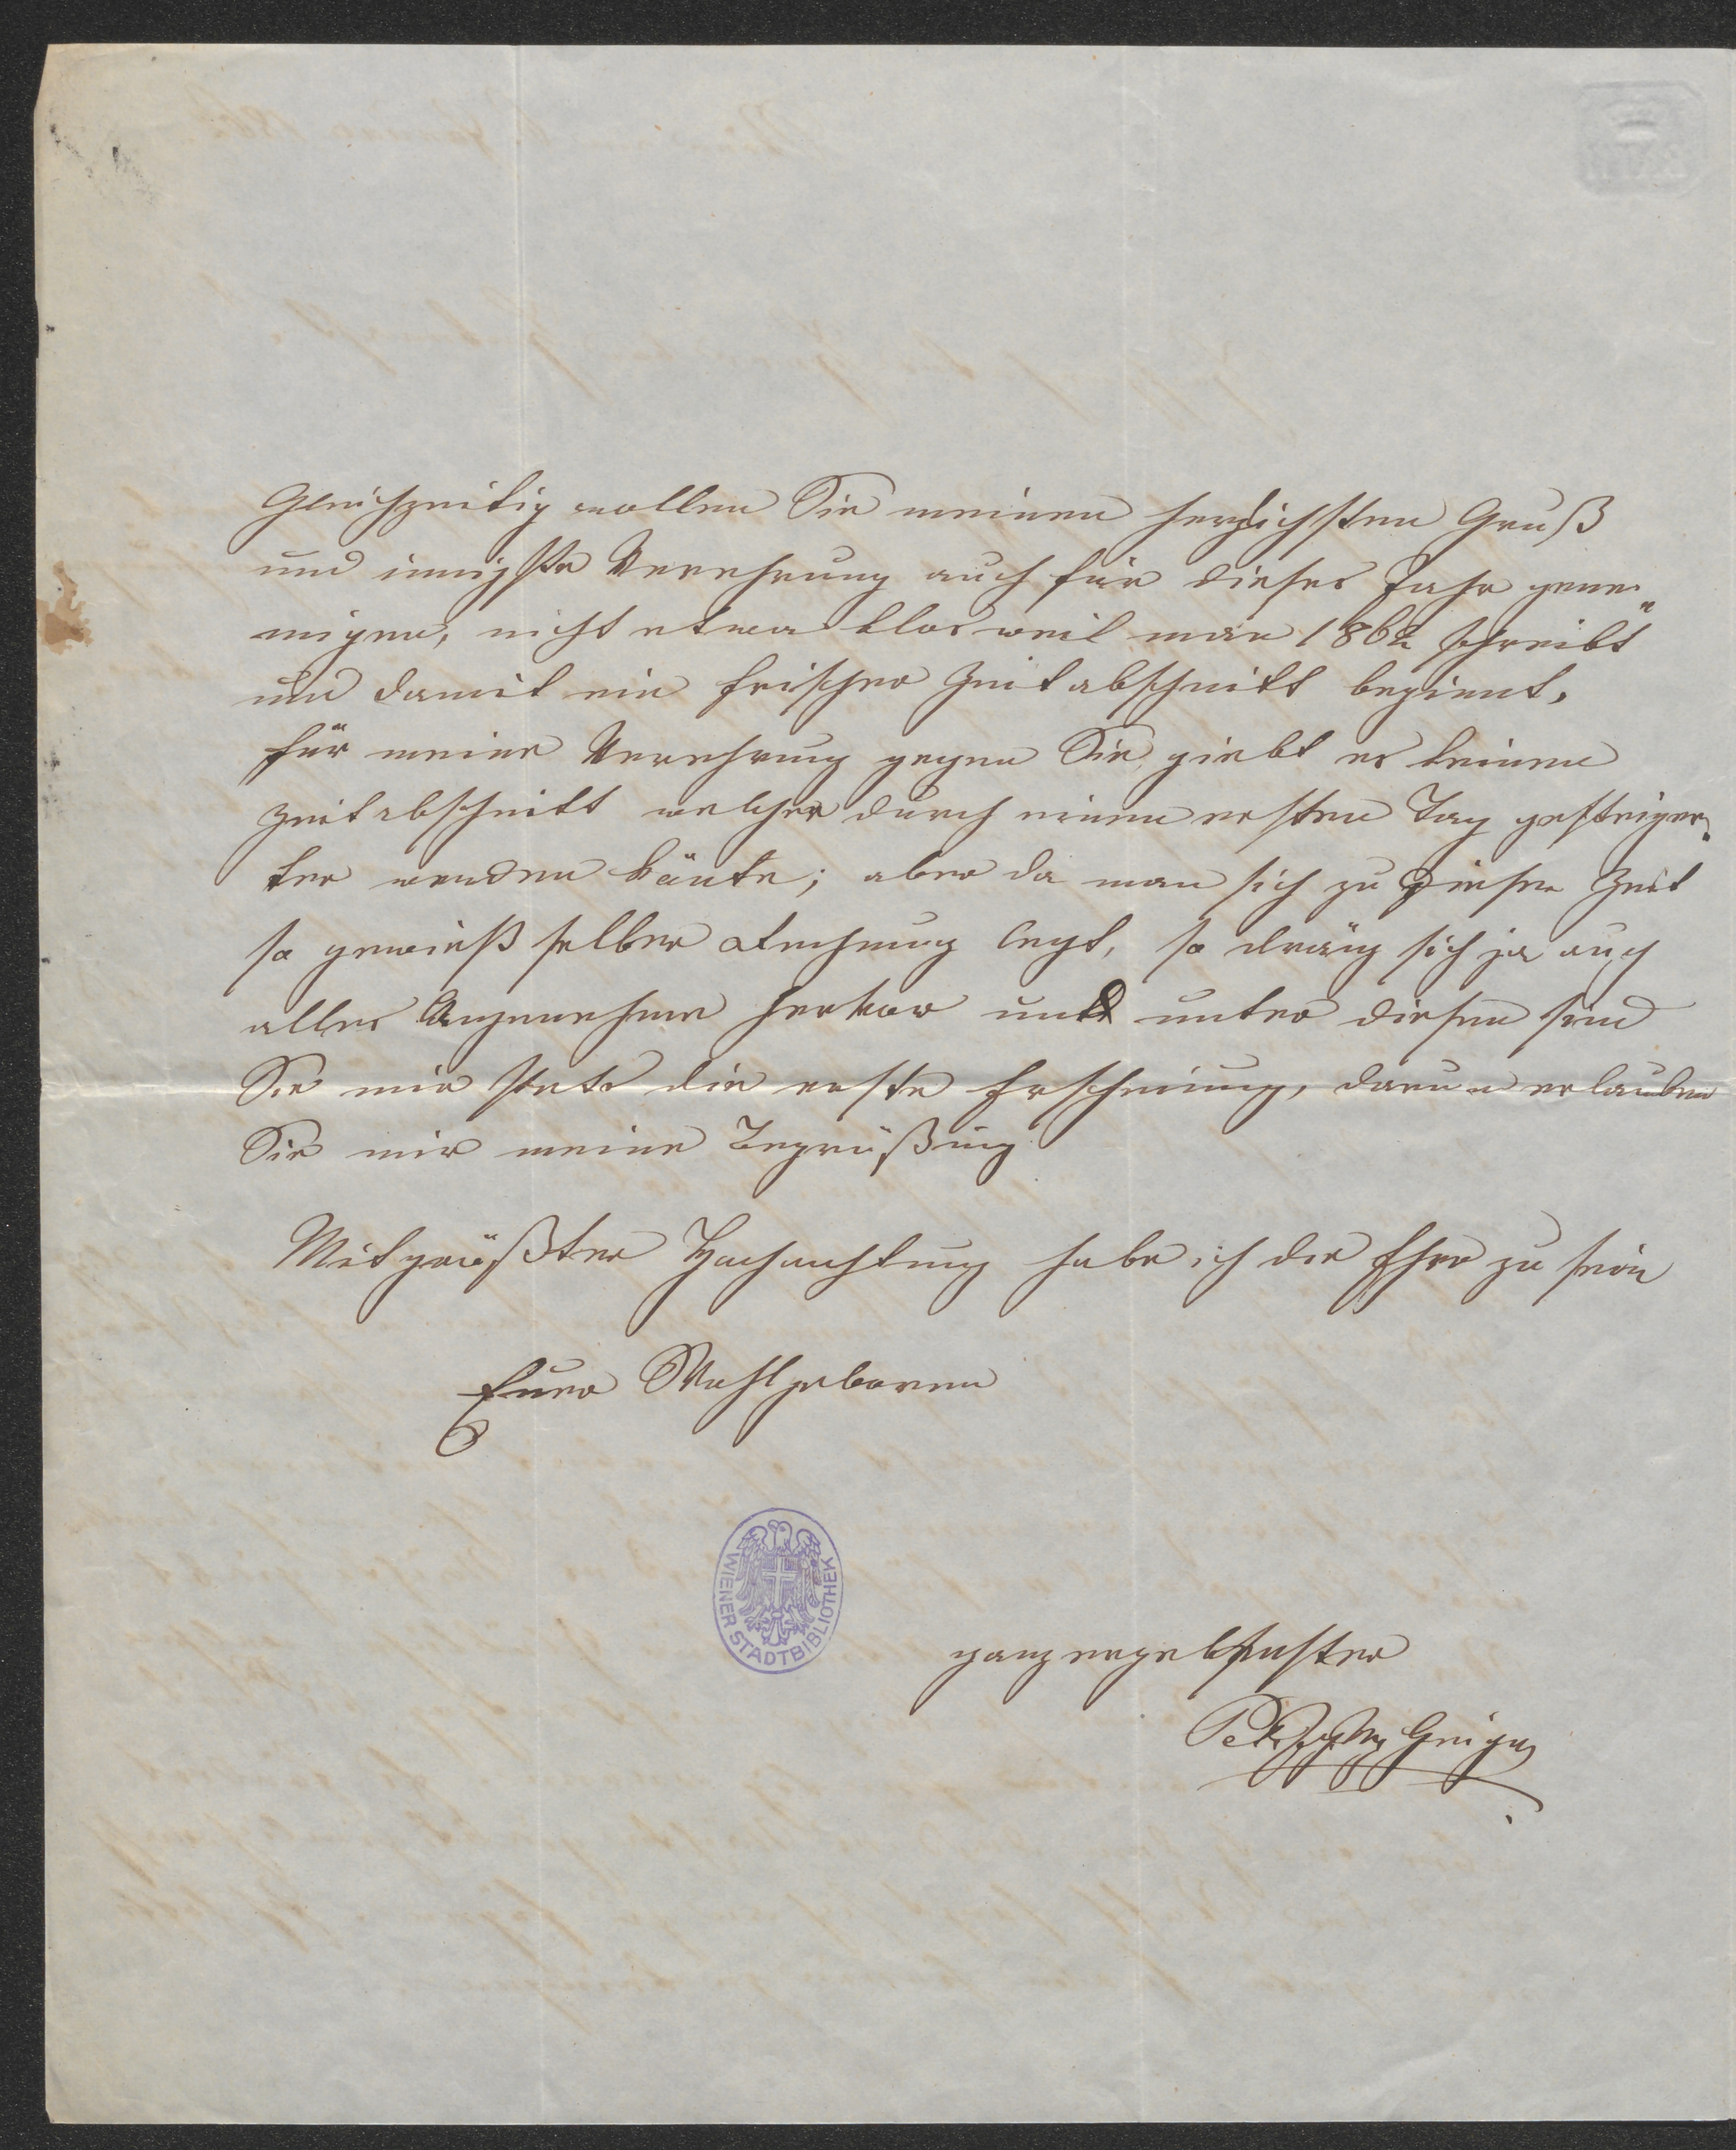 Gleichzeitig wollen Sie meinen herzlichsten Gruß
und innigste Verehrung auch für dieses Jahr geneh„
migen, nicht etwa blos weil man 1862 schreibt
und damit ein frischer Zeitabschnitt begient.
für meine Verehrung gegen Sie giebt es keinen
Zeitabschnitt welcher durch einen ersten Tag gesteiger„
ter werden könte; aber da man sich zu dieser Zeit
so gewieß selber Rechnung legt, so dräng sich ja auch
alles Angenehme hervor und unter diesen sind
Sie mir stets die erste Erscheinung, darum erlauben
Sie mir meine Begrüßung
Mit größter Hochachtung habe ich die Ehre zu sein
Euer Wohlgeboren
WIENER STADTBIBLIOTHEK
ganz ergebenster
Geiger